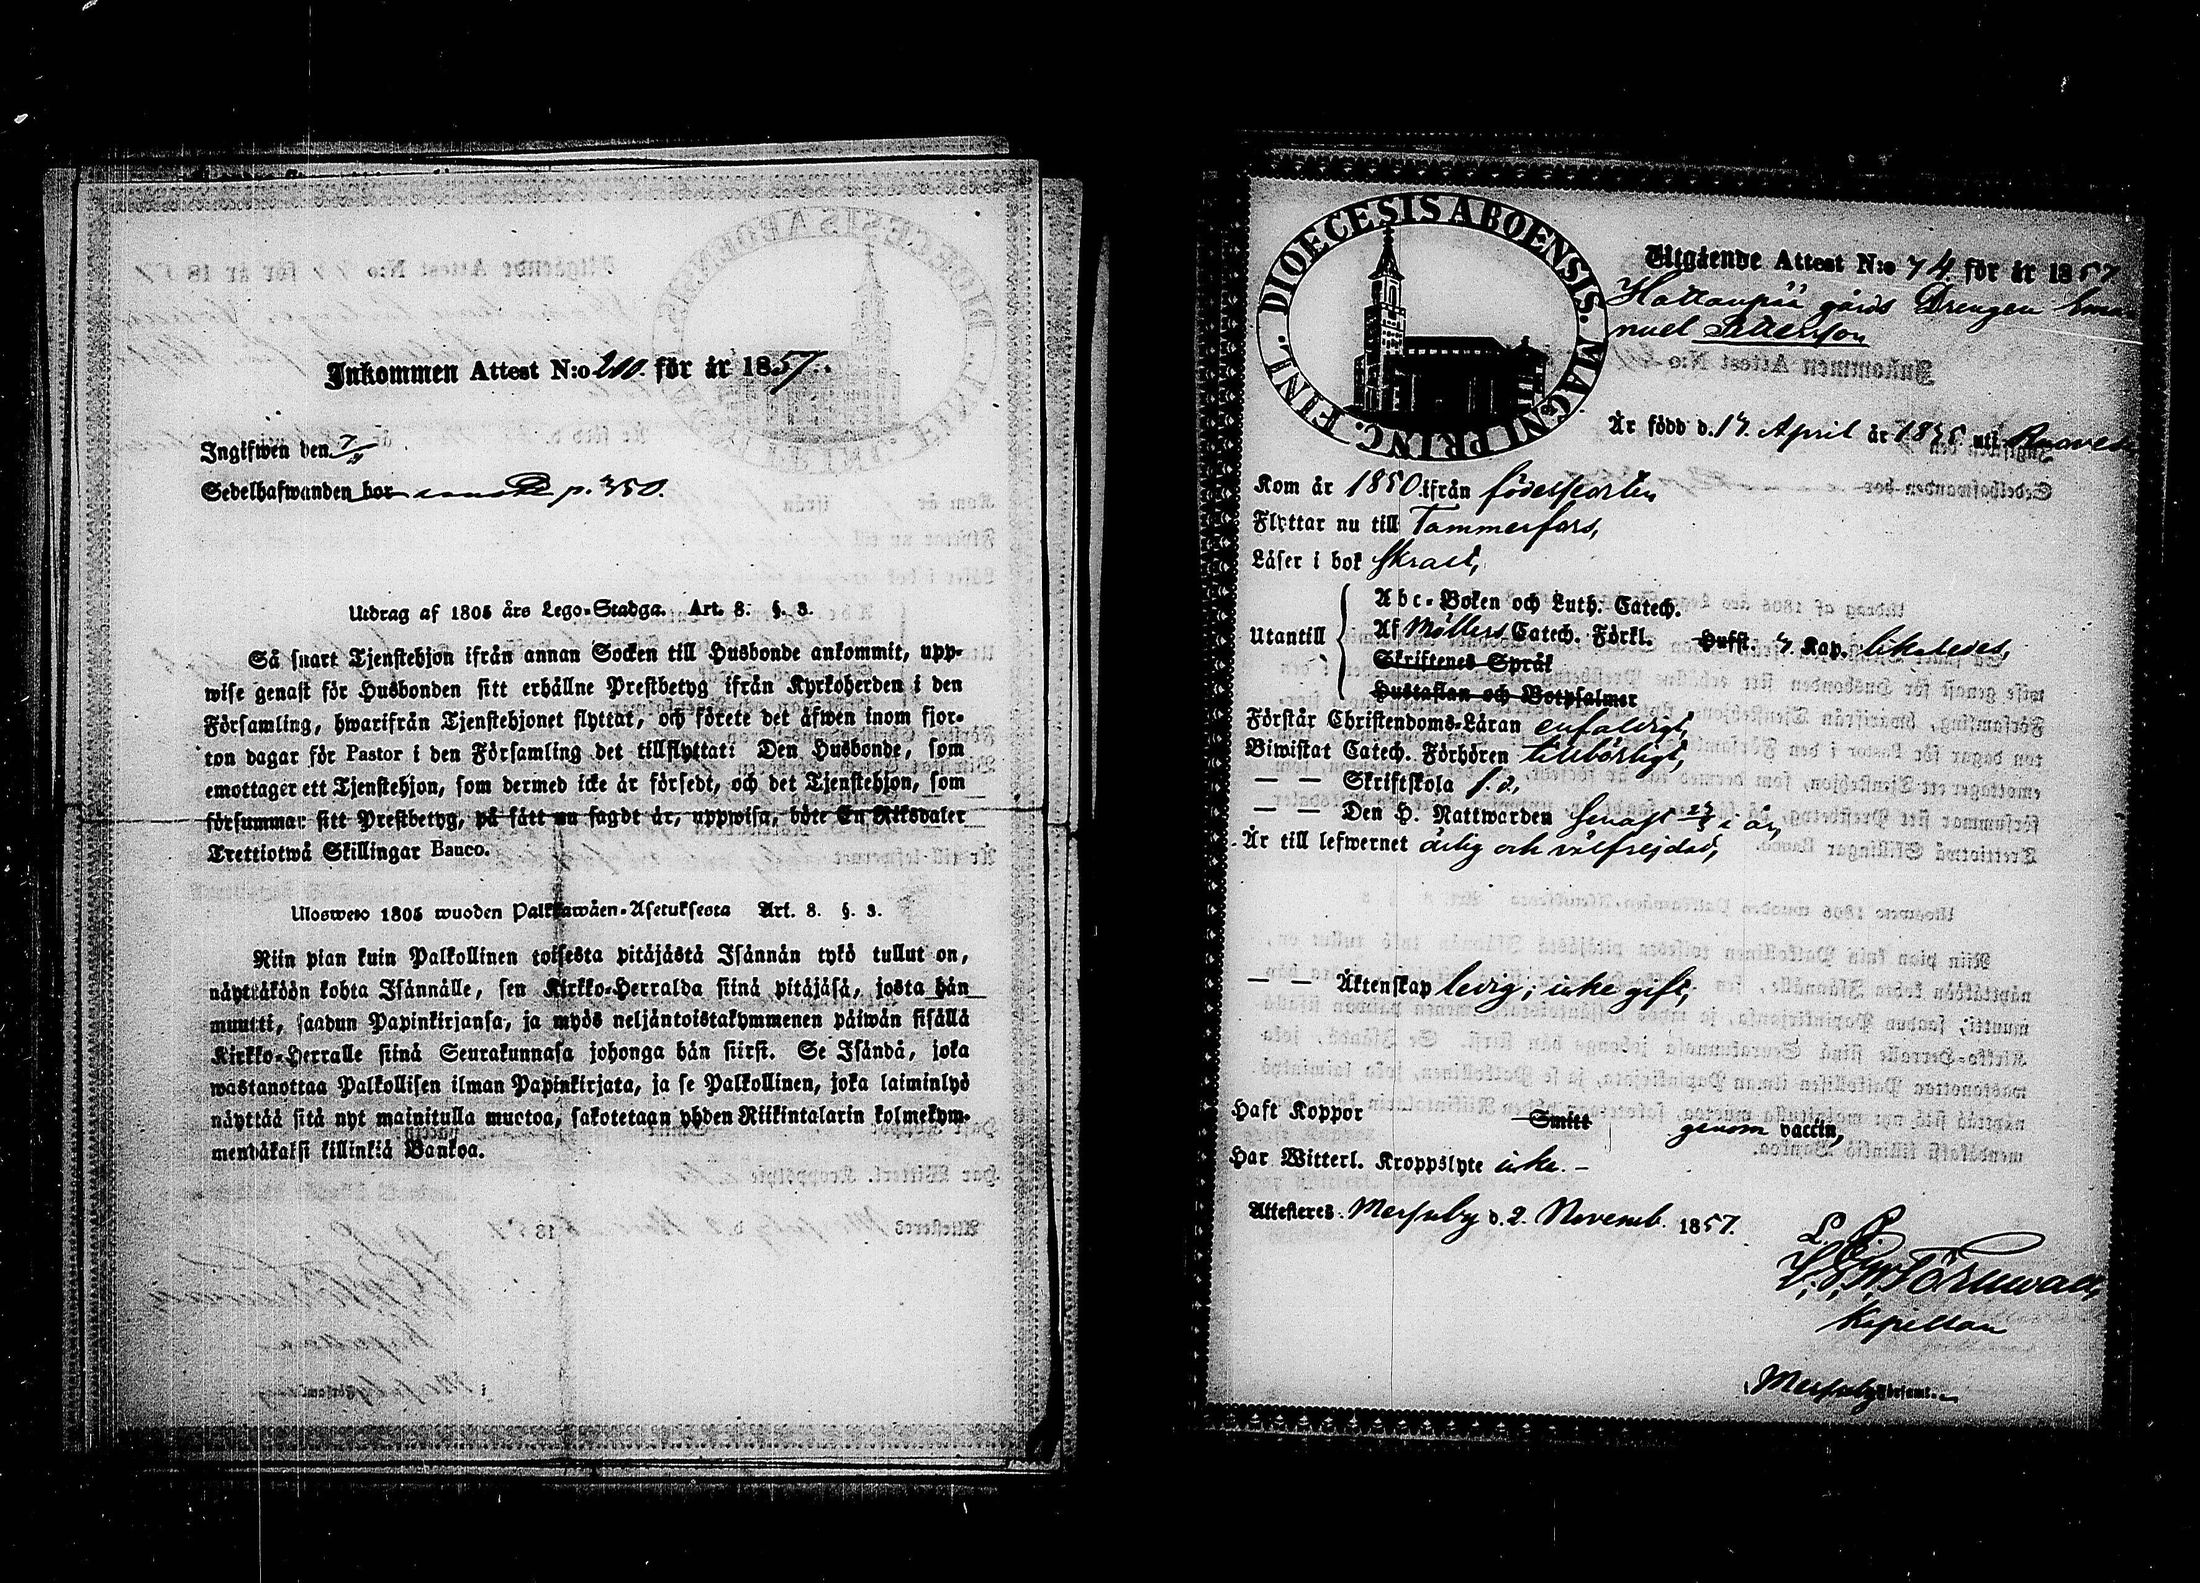 Inkommen Attest N:o 200 för år 1857.
Ingifwen den 7/11
Sedelhafwanden bor p. 350.
Utdrag af 1805 års Lego-Stadga. Art. 8. §. 3.
Så snart Tjenstehjon ifrån annan Socken till Husbonde ankommit, upp-
wise genast för Husbonden sitt erhållne Prestbetyg ifrån Kyrkoherden i den
Församling, hwarifrån Tjenstehjonet flyttat, och förete det äfwen inom fjor-
ton dagar för Pastor i den Församling det tillflyttat: Den Husbonde, som
emottager ett Tjenstehjon, som dermed icke är försedt, och det Tjenstehjon, som
försummar sitt Prestbetyg, på sätt nu sagdt är, uppwisa, böte En Riksdaler
Trettiotwå Skillingar Banco.
Ulosweto 1805 wuoden Palkkawäen-Asetuksesta Art. 8. §. 3.
Niin pian kuin Palkollinen toisesta pitäjästä Isännän tykö tullut on,
näyttäköön kohta Isännälle, sen Kirkko-Herralda siinä pitäjäsä, josta hän
muutti, saadun Papinkirjansa, ja myös neljäntoistakymmenen päiwän sisällä
Kirkko-Herralle siinä Seurakunnasa johonga hän siirsi. Se Isändä, joka
wastanottaa Palkollisen ilman Papinkirjata, ja se Palkollinen, joka laiminlyö
näyttää sitä nyt mainitulla muotoa, sakotetaan yhden Riikintalarin kolmekym-
mendäkaksi killinkiä Bankoa.
DIOECESIS ABOENSIS. MAGNI PRINC. FINL.
Utgående Attest N:o 74 för år 1857
Hattanpää gårds Drengen Ema-
nuel
Är född d. 17. April år 1835 uti Ruovesi
Kom år 1850 ifrån födelseorten
Flyttar nu till Tammerfors,
Läser i bok skralt,
Utantill
Abc-Boken och Luth. Catech.
Af Möllers Catech. Förkl. Hufst. 7. Kap. likaledes,
Skriftenes Språk
Hustaflan och Botpsalmer
Förstår Christendoms-Läran enfaldigt,
Biwistat Catech. Förhören tillbörligt,
— — Skriftskola s. d.,
— — Den H. Nattwarden senast i år,
Är till lefwernet ärlig och välfrejdad,
— — Äktenskap ledig; icke gift,
Haft Koppor Smitt genom vaccin,
Har Witterl. Kroppslyte icke. –
Attesteres Messuby d. 2. Novemb. 1857.
Törnwall,
Kapellan
i Messuby Församl.